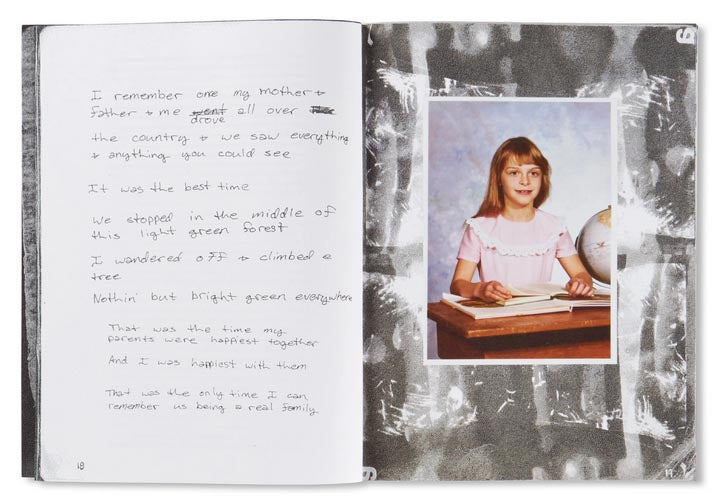 I remember one my mother +
father + me went all over
drove
the country + we saw everything
+ anything you could see
It was the best time
We stopped in the middle of
this light green forest
I wandered off + climbed a
tree
Nothin' but bright green everywhere
That was the time my
parents were happiest together
And I was happiest with them
That was the only time I can
remember us being a real family
18